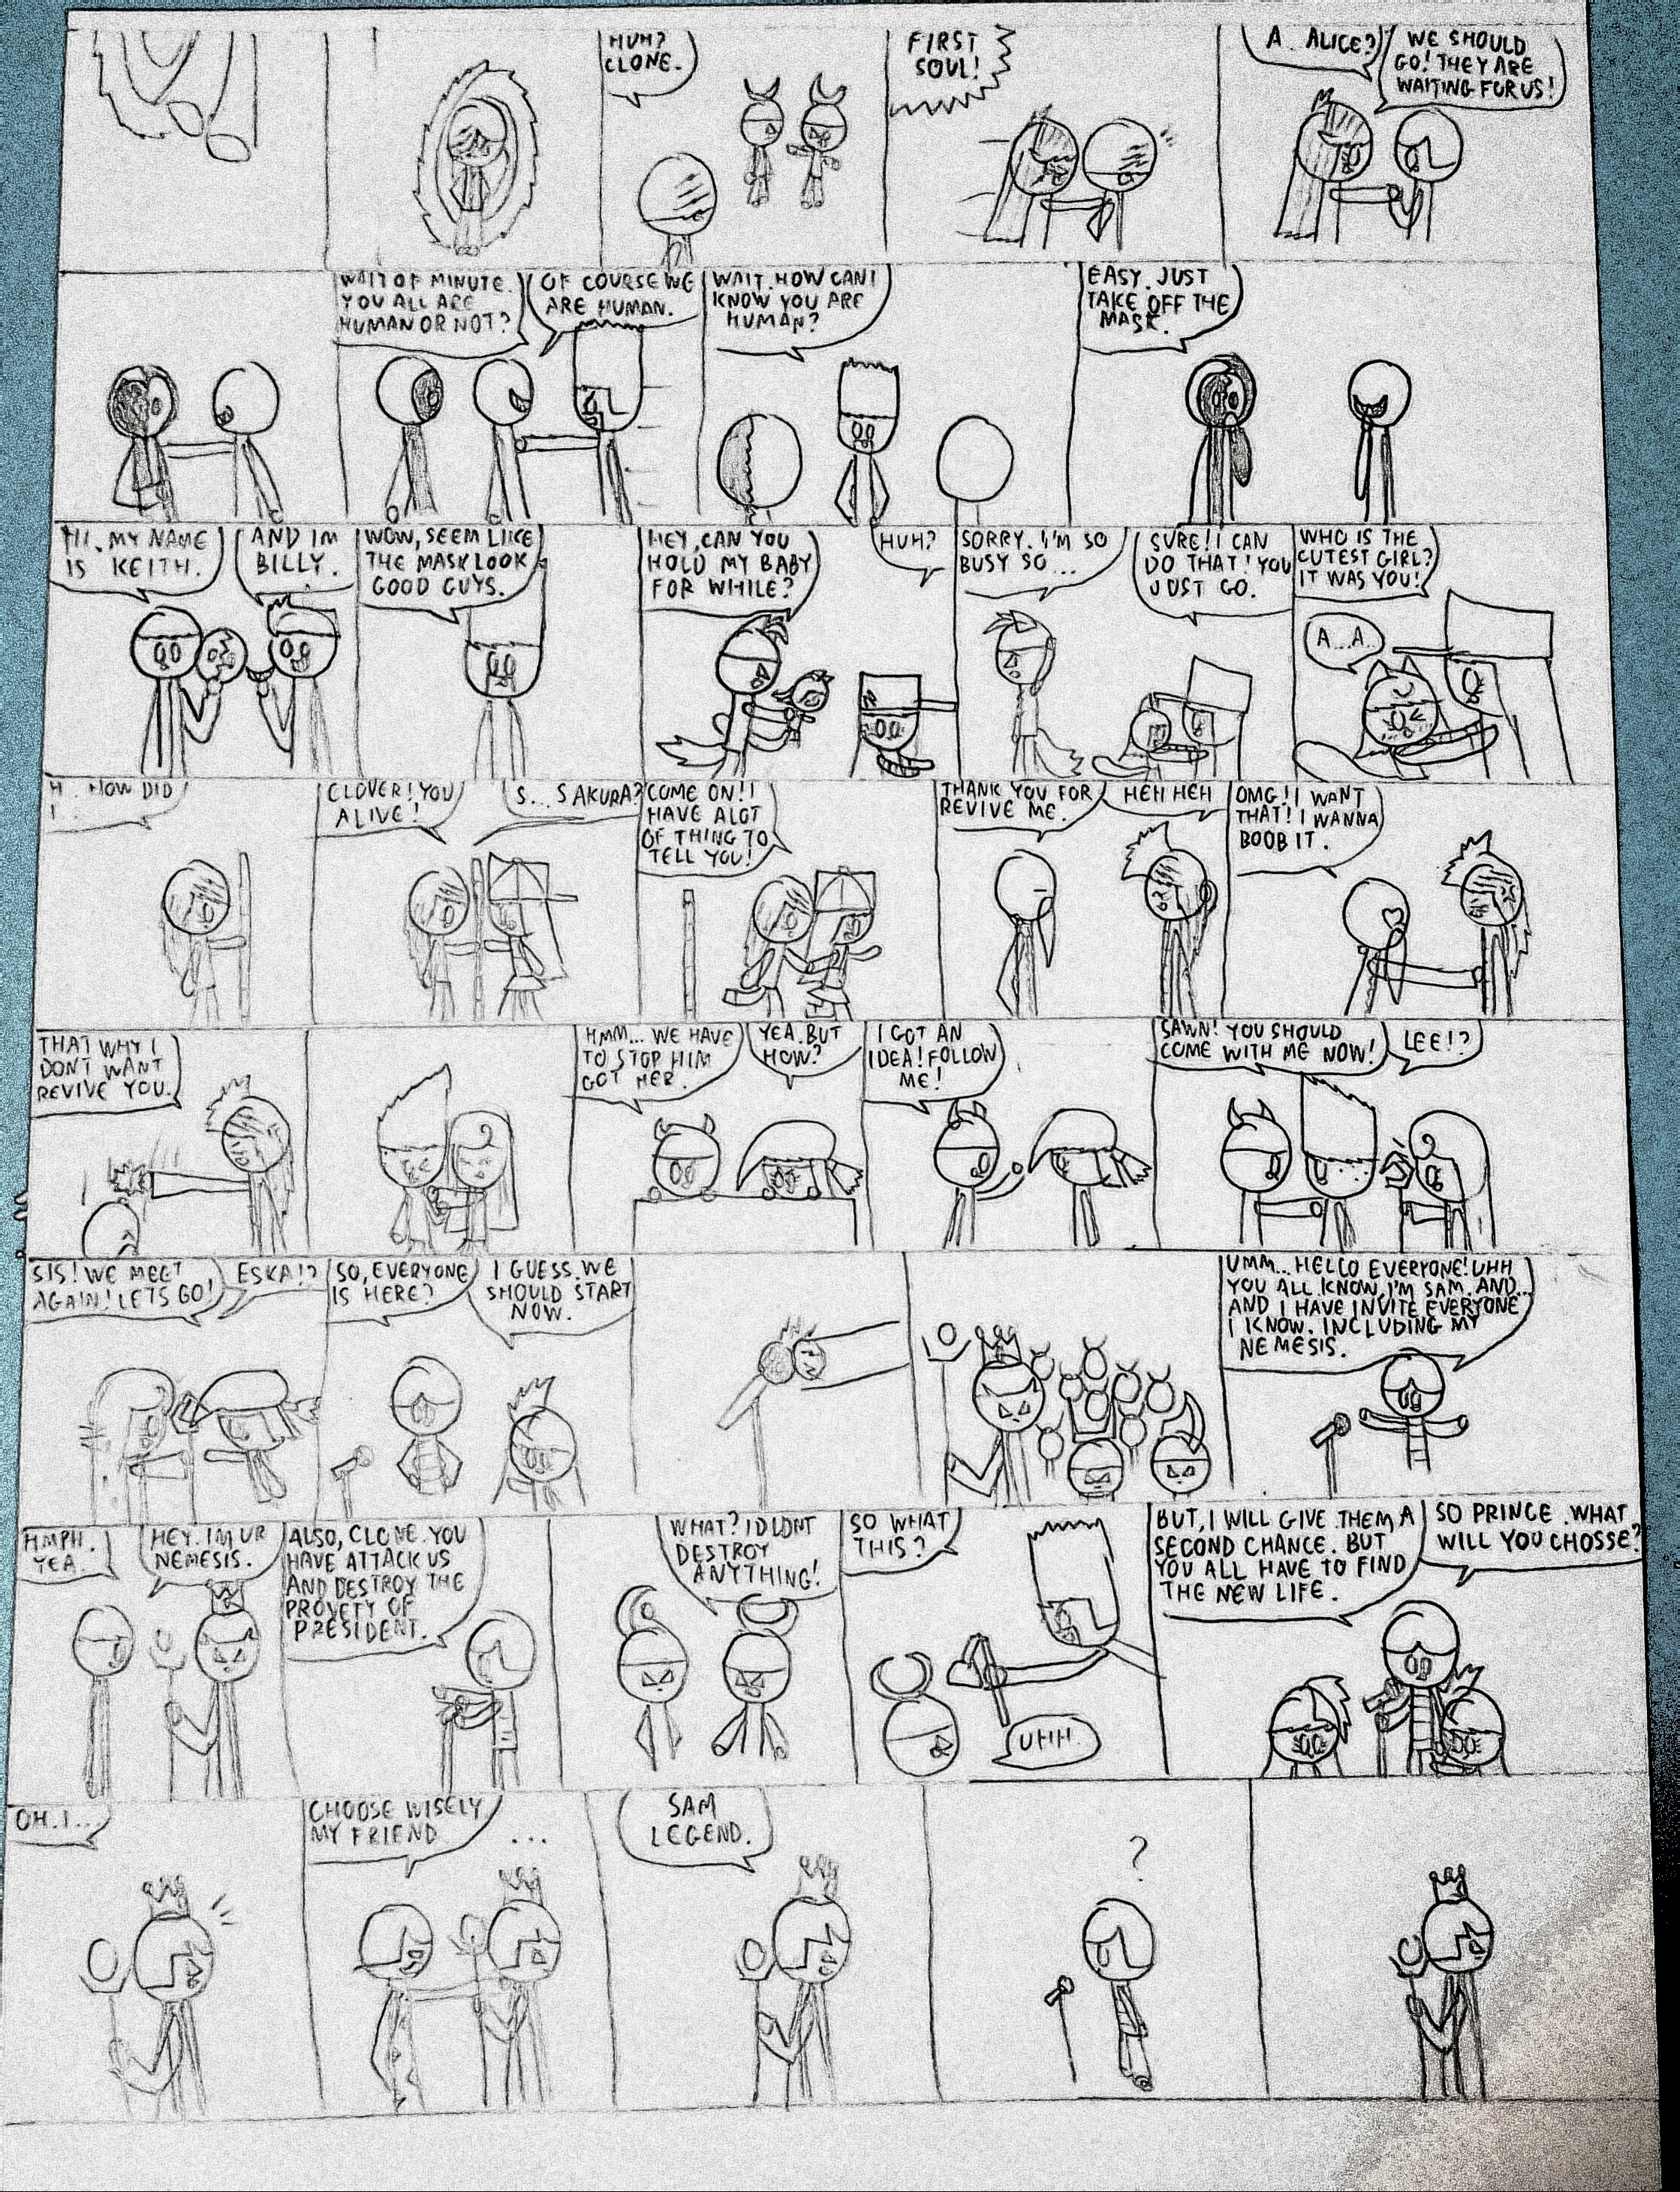 HUH?
CLONE.
FIRST
SOUL!
A.. ALICE?
WE SHOULD
GO! THEY ARE
WAITING FOR US!
WAIT OF MINUTE.
YOU ALL ARE
HUMAN OR NOT?
OF COURSE WE
ARE HUMAN.
WAIT. HOW CAN I
KNOW YOU ARE
HUMAN?
EASY. JUST
TAKE OFF THE
MASK.
HI. MY NAME
IS KEITH.
AND IM
BILLY.
WOW, SEEM LIKE
THE MASK LOOK
GOOD GUYS.
HEY, CAN YOU
HOLD MY BABY
FOR WHILE?
HUH?
SORRY. I'M SO
BUSY SO...
SURE! I CAN
DO THAT! YOU
JUST GO.
WHO IS THE
CUTEST GIRL?
IT WAS YOU!
A...A..
H.. HOW DID
I..
CLOVER! YOU
ALIVE!
S... SAKURA?
COME ON! I
HAVE ALOT
OF THING TO
TELL YOU!
THANK YOU FOR
REVIVE ME.
HEH HEH
OMG! I WANT
THAT! I WANNA
BOOB IT.
THAT WHY I
DON'T WANT
REVIVE YOU.
HMM... WE HAVE
TO STOP HIM
GOT HER.
YEA. BUT
HOW?
I GOT AN
IDEA! FOLLOW
ME!
SAWN! YOU SHOULD
COME WITH ME NOW!
LEE!?
SIS! WE MEET
AGAIN! LETS GO!
ESKA!?
SO, EVERYONE
IS HERE?
I GUESS. WE
SHOULD START
NOW.
UMM... HELLO EVERYONE! UHH
YOU ALL KNOW, I'M SAM. AND...
AND I HAVE INVITE EVERYONE
I KNOW. INCLUDING MY
NEMESIS.
HMPH.
YEA.
HEY. IM UR
NEMESIS.
ALSO, CLONE. YOU
HAVE ATTACK US
AND DESTROY THE
PROVETY OF
PRESIDENT.
WHAT? I DIDNT
DESTROY
ANYTHING!
SO WHAT
THIS?
UHH.
BUT, I WILL GIVE THEM A
SECOND CHANCE. BUT
YOU ALL HAVE TO FIND
THE NEW LIFE.
SO PRINCE. WHAT
WILL YOU CHOSSE?
OH. I...
CHOOSE WISELY
MY FRIEND
...
SAM
LEGEND.
?